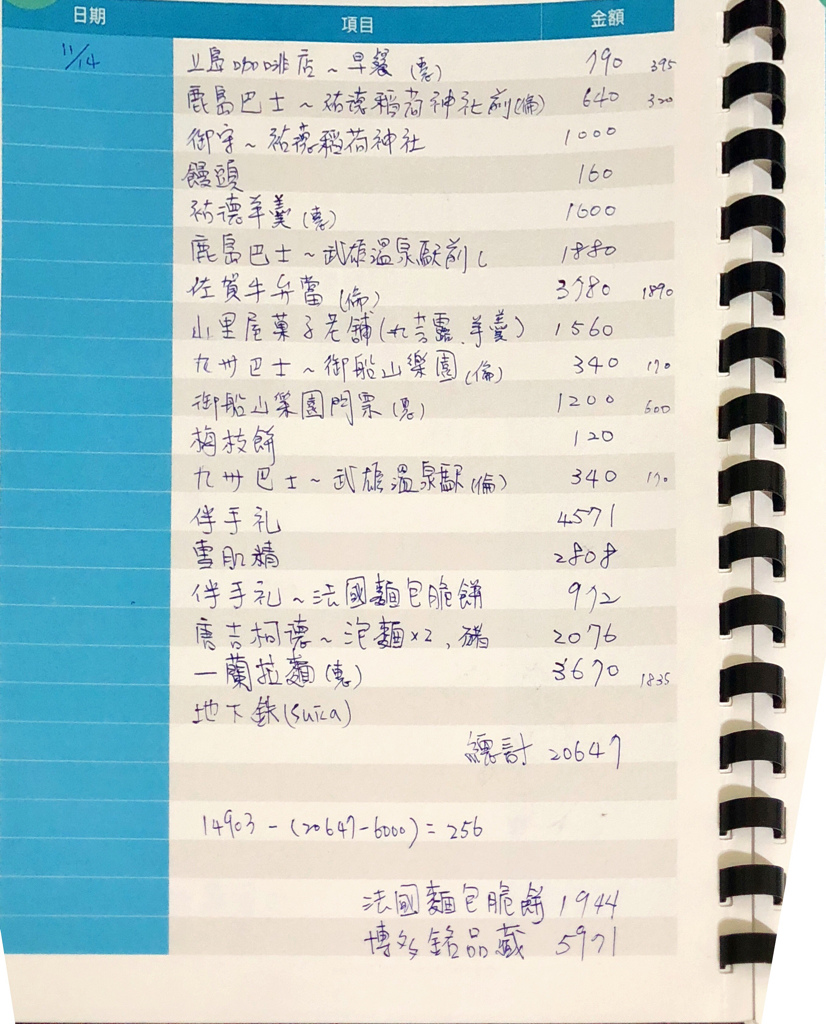 日期 項目 金額
11/14 立島咖啡店~早餐(惠) 790 395
鹿島巴士~祐德稻荷神社前(倫) 640 320
御守~祐德稻荷神社 1000
饅頭 160
祐德羊羹(惠) 1600
鹿島巴士~武雄溫泉駅前 1880
佐賀牛弁當(倫) 3780 1890
山里屋菓子老舖(丸芳露、羊羹) 1560
九州巴士~御船山樂園(倫) 340 170
御船山樂園門票(惠) 1200 600
梅枝餅 120
九州巴士~武雄溫泉駅(倫) 340 170
伴手礼 4571
雪肌精 2808
伴手礼~法國麵包脆餅 972
唐吉柯德~泡麵×2、豬 2076
一蘭拉麵(惠) 3670 1835
地下鉄(Suica)
總計 20647
14903-(20647-6000)=256
法國麵包脆餅 1944
博多銘品蔵 5971